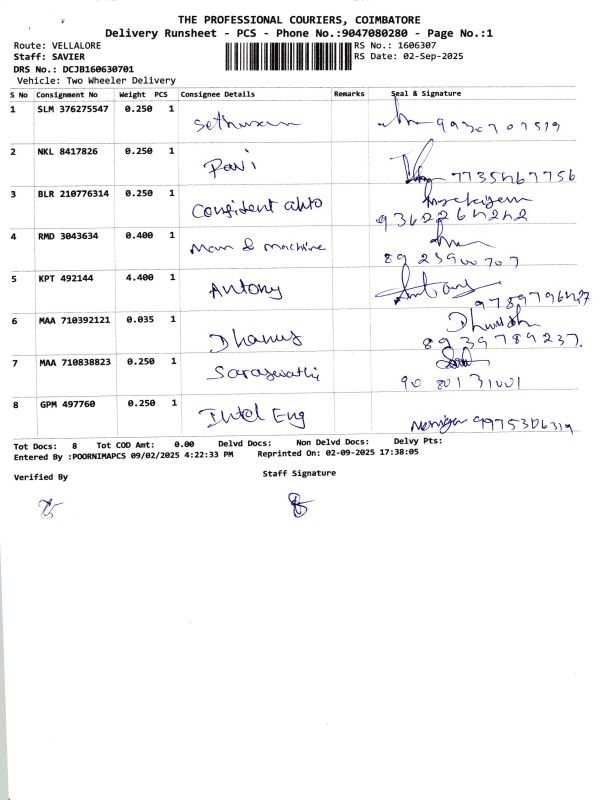 THE PROFESSIONAL COURIERS, COIMBATORE
Delivery Runsheet - PCS - Phone No.:9047080280 - Page No.:1
Route: VELLALORE
RS No.: 1606307
Staff: SAVIER
RS Date: 02-Sep-2025
DRS No.: DCJB160630701
Vehicle: Two Wheeler Delivery
S No Consignment No Weight PCS Consignee Details Remarks Seal & Signature
1 SLM 376275547 0.250 1
2 NKL 8417826 0.250 1 Ravi
3 BLR 210776314 0.250 1 Confident auto
4 RMD 3043634 0.400 1 Man & machine
5 KPT 492144 4.400 1 Antony
6 MAA 710392121 0.035 1 Dhanus
8939789237.
7 MAA 710838823 0.250 1 Saraswathi
9020131001
8 GPM 497760 0.250 1 Intel Eng
Tot Docs: 8 Tot COD Amt: 0.00 Delvd Docs: Non Delvd Docs: Delvy Pts:
Entered By :POORNIMAPCS 09/02/2025 4:22:33 PM Reprinted On: 02-09-2025 17:38:05
Verified By
Staff Signature